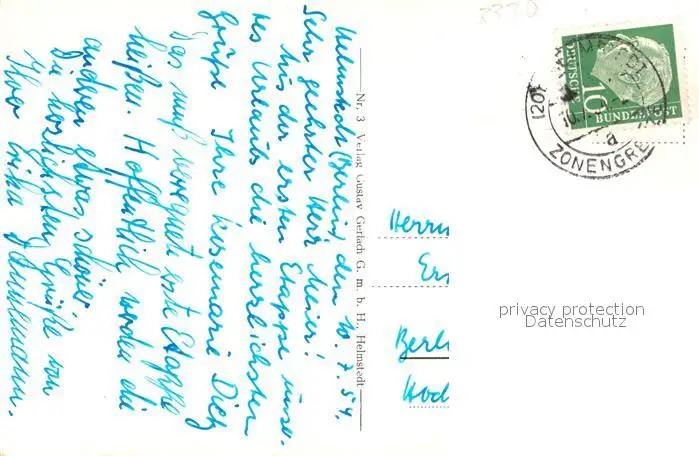 Helmstedt (Berlin), den 10.7.54.
Sehr geehrter Herr Meier!
Aus der ersten Etappe unse-
res Urlaubs die herzlichsten
Grüße Ihre Rosemarie Dietz
Das muß verregnete erste Etappe
heißen. Hoffentlich werden die
anderen etwas schöner
Die herzlichsten Grüße von
Ihrer Erika
Nr. 3 Verlag Gustav Gerlach G. m. b. H., Helmstedt
3370
DEUTSCHE
BUNDESPOST
10
(20)
a
ZONENGRE
Herrn
Berl
privacy protection
Datenschutz